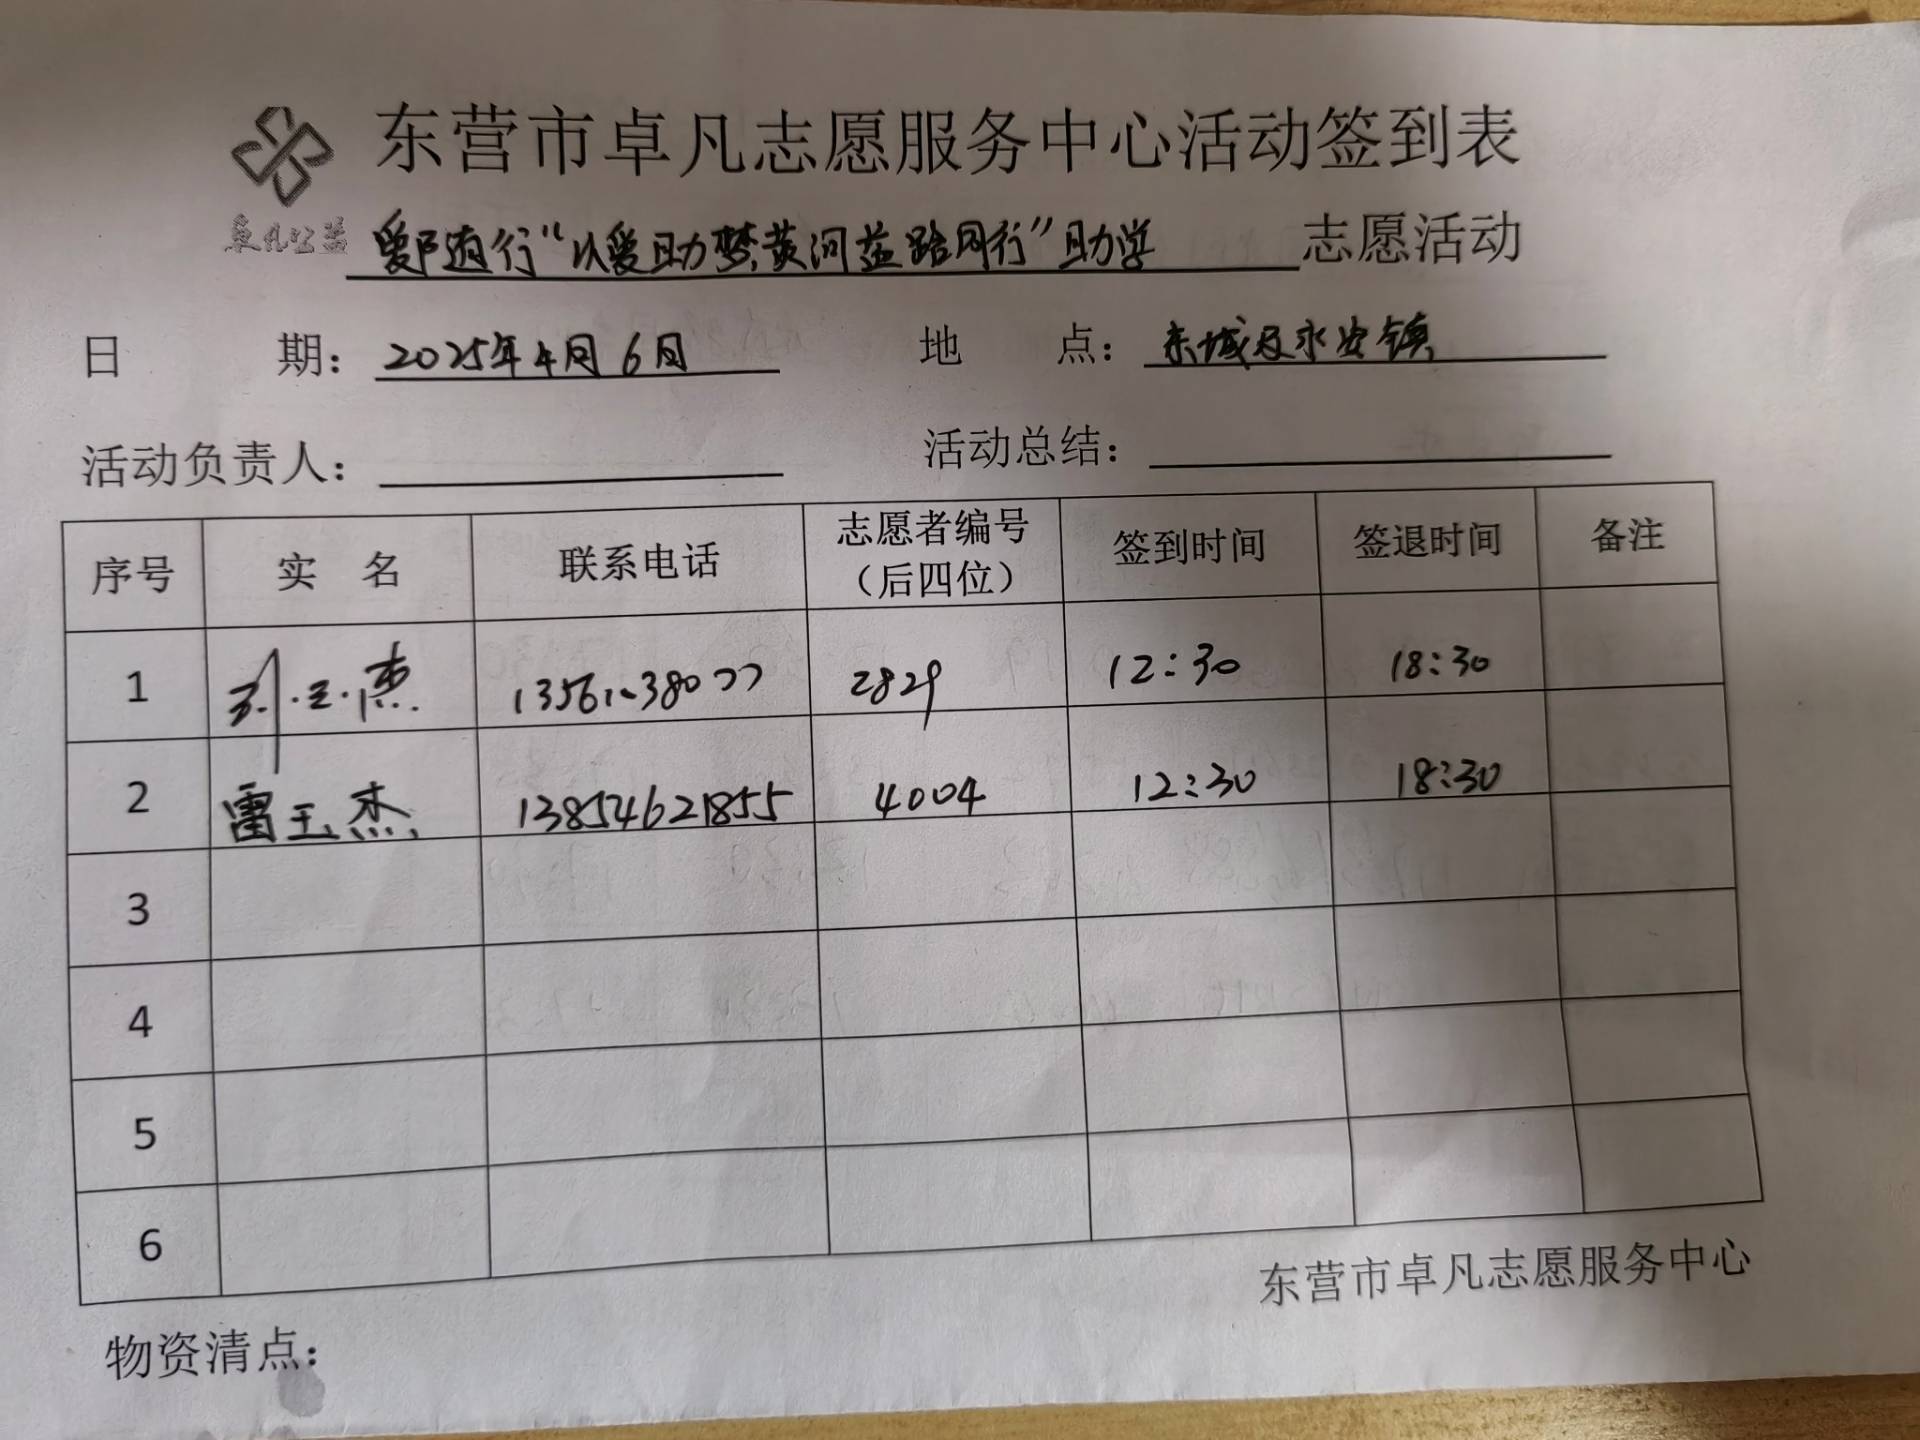 东营市卓凡志愿服务中心活动签到表
卓凡公益
爱随行“以爱助梦黄河益路同行”助学 志愿活动
日期：2025年4月6日 地点：东城及永安镇
活动负责人： 活动总结：
序号 实名 联系电话 志愿者编号（后四位） 签到时间 签退时间 备注
1 2829 12:30 18:30
2 雷玉杰 13854621855 4004 12:30 18:30
3
4
5
6
东营市卓凡志愿服务中心
物资清点：